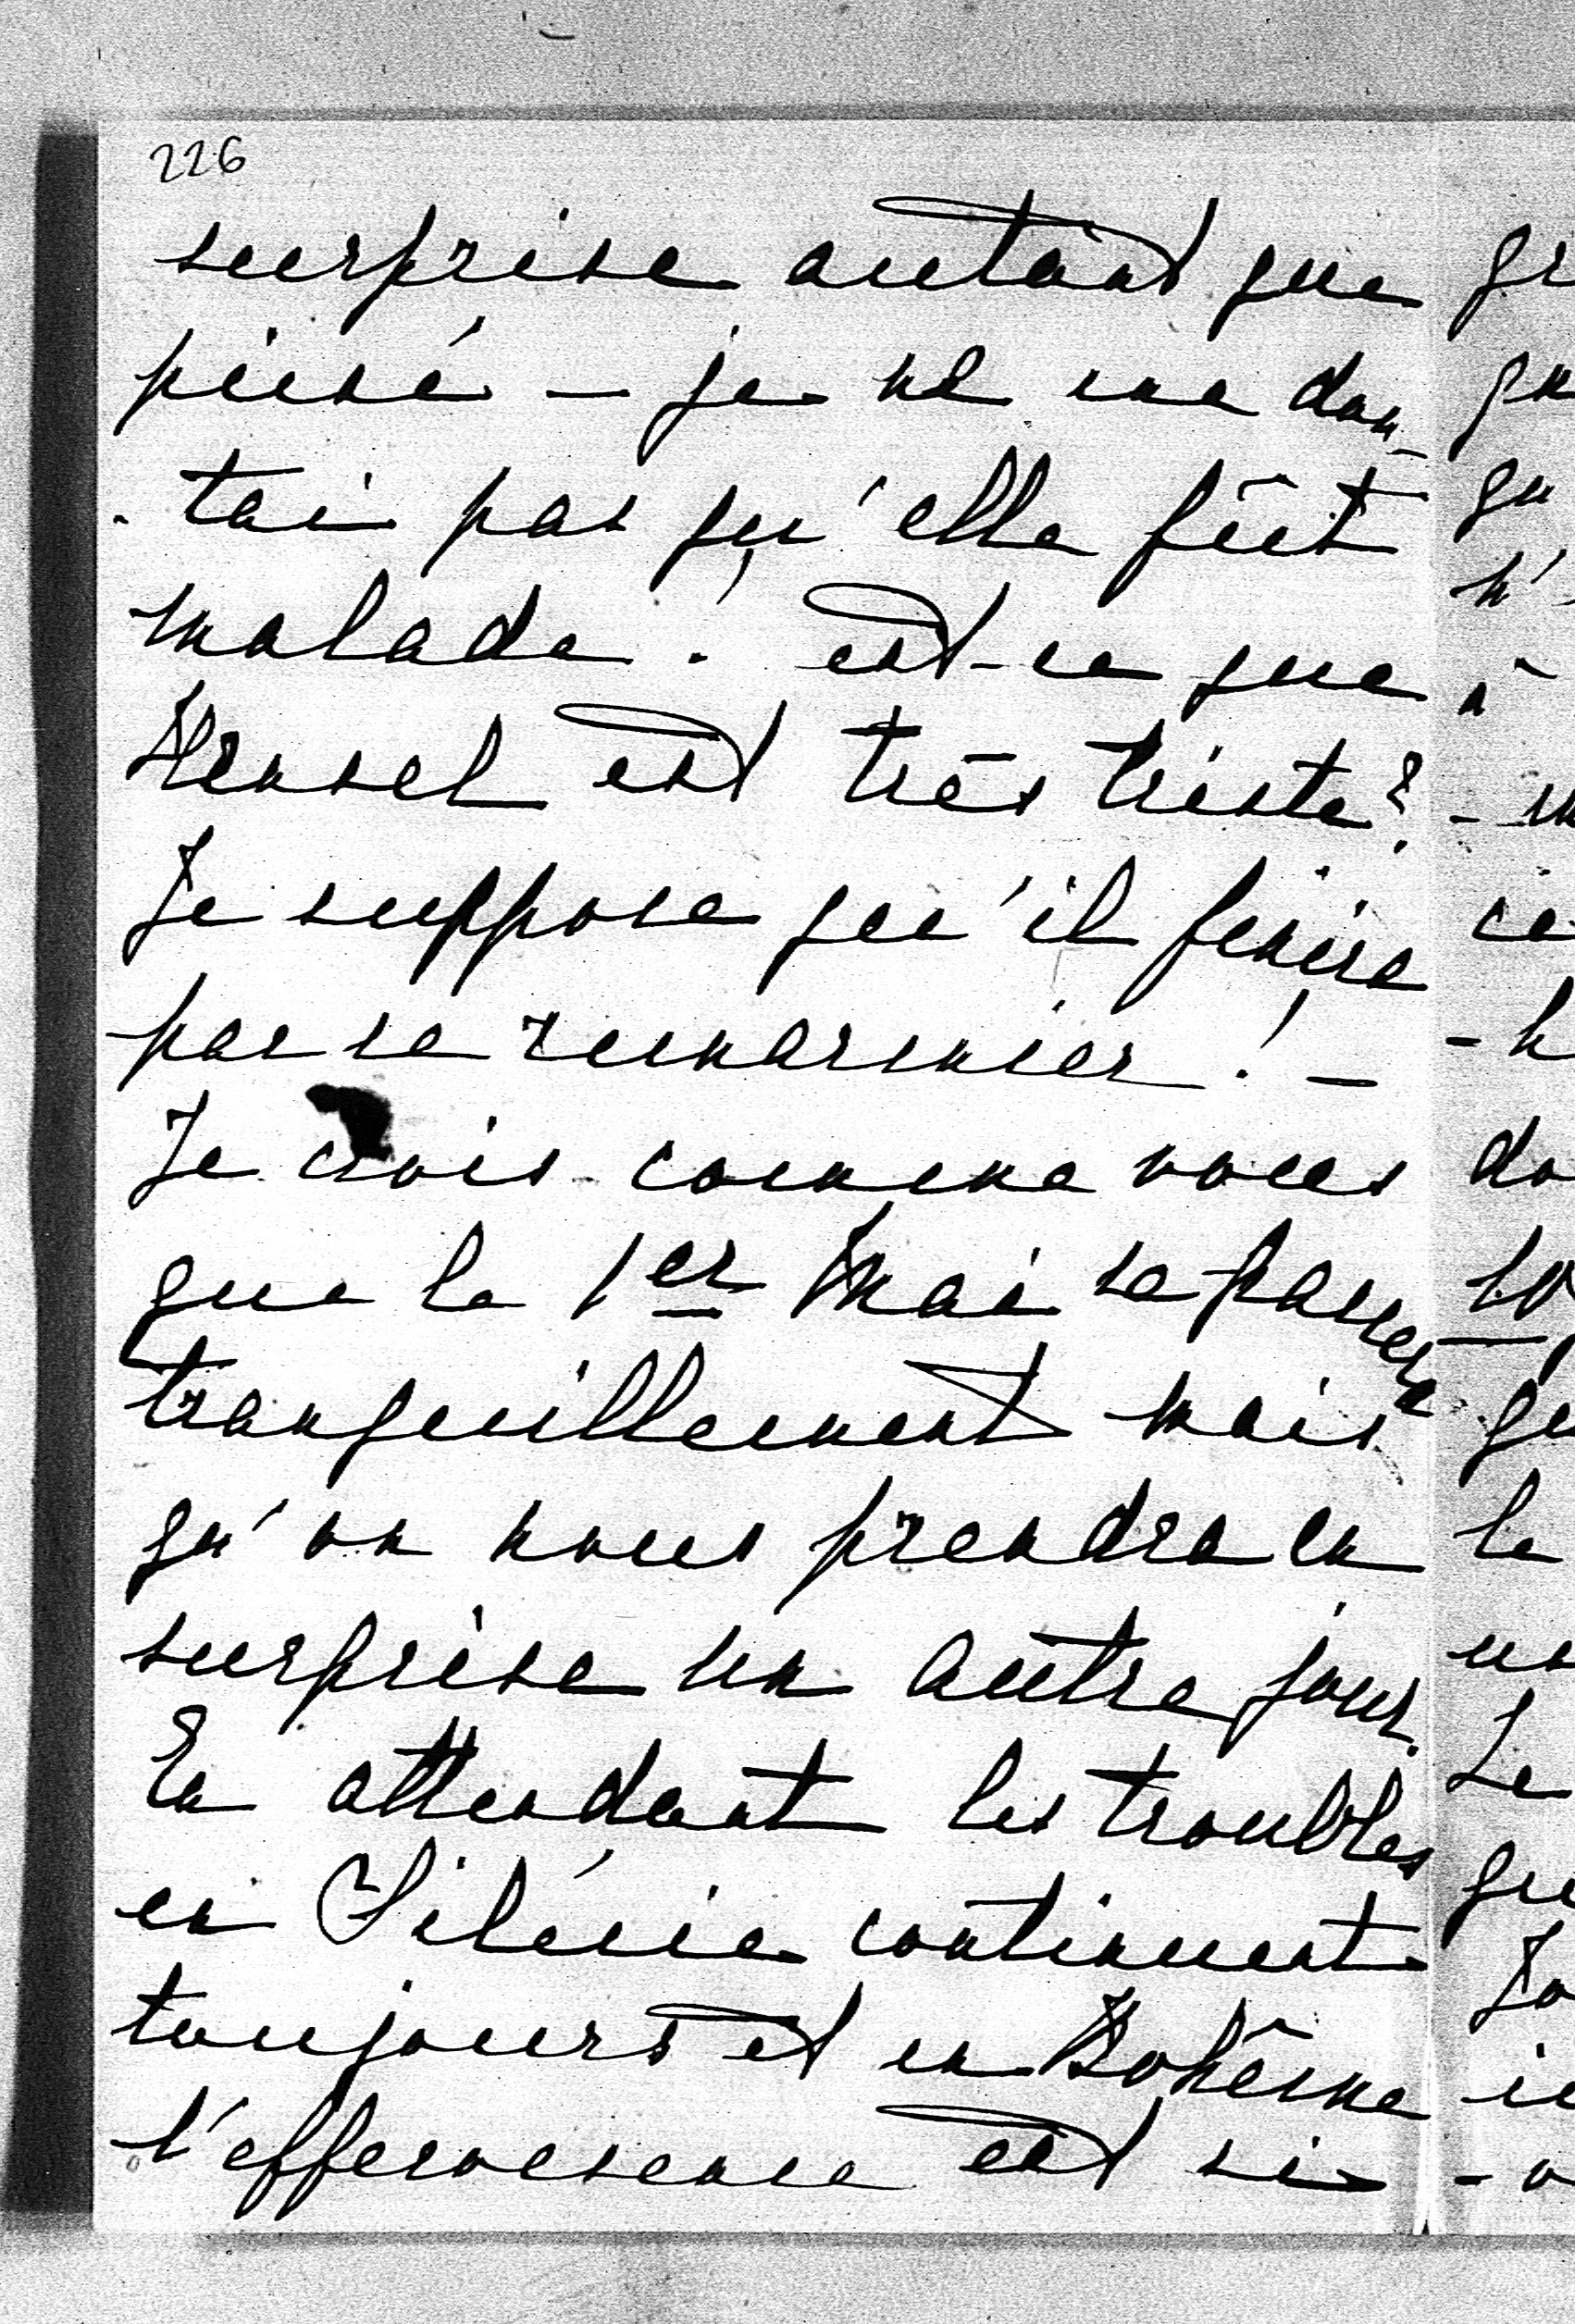 226
surprise autant que
peiné — je ne me dou-
tai pas qu'elle fût
malade! est-ce que
Hensel est très triste?
Je suppose qu'il finira
par se remarier! —
Je crois comme vous
que le 1er Mai se passera
tranquillement mais
qu'on nous prendra en
surprise un autre jour.
En attendant les troubles
en Silésie continuent
toujours et en Bohême
l'effervescence est si